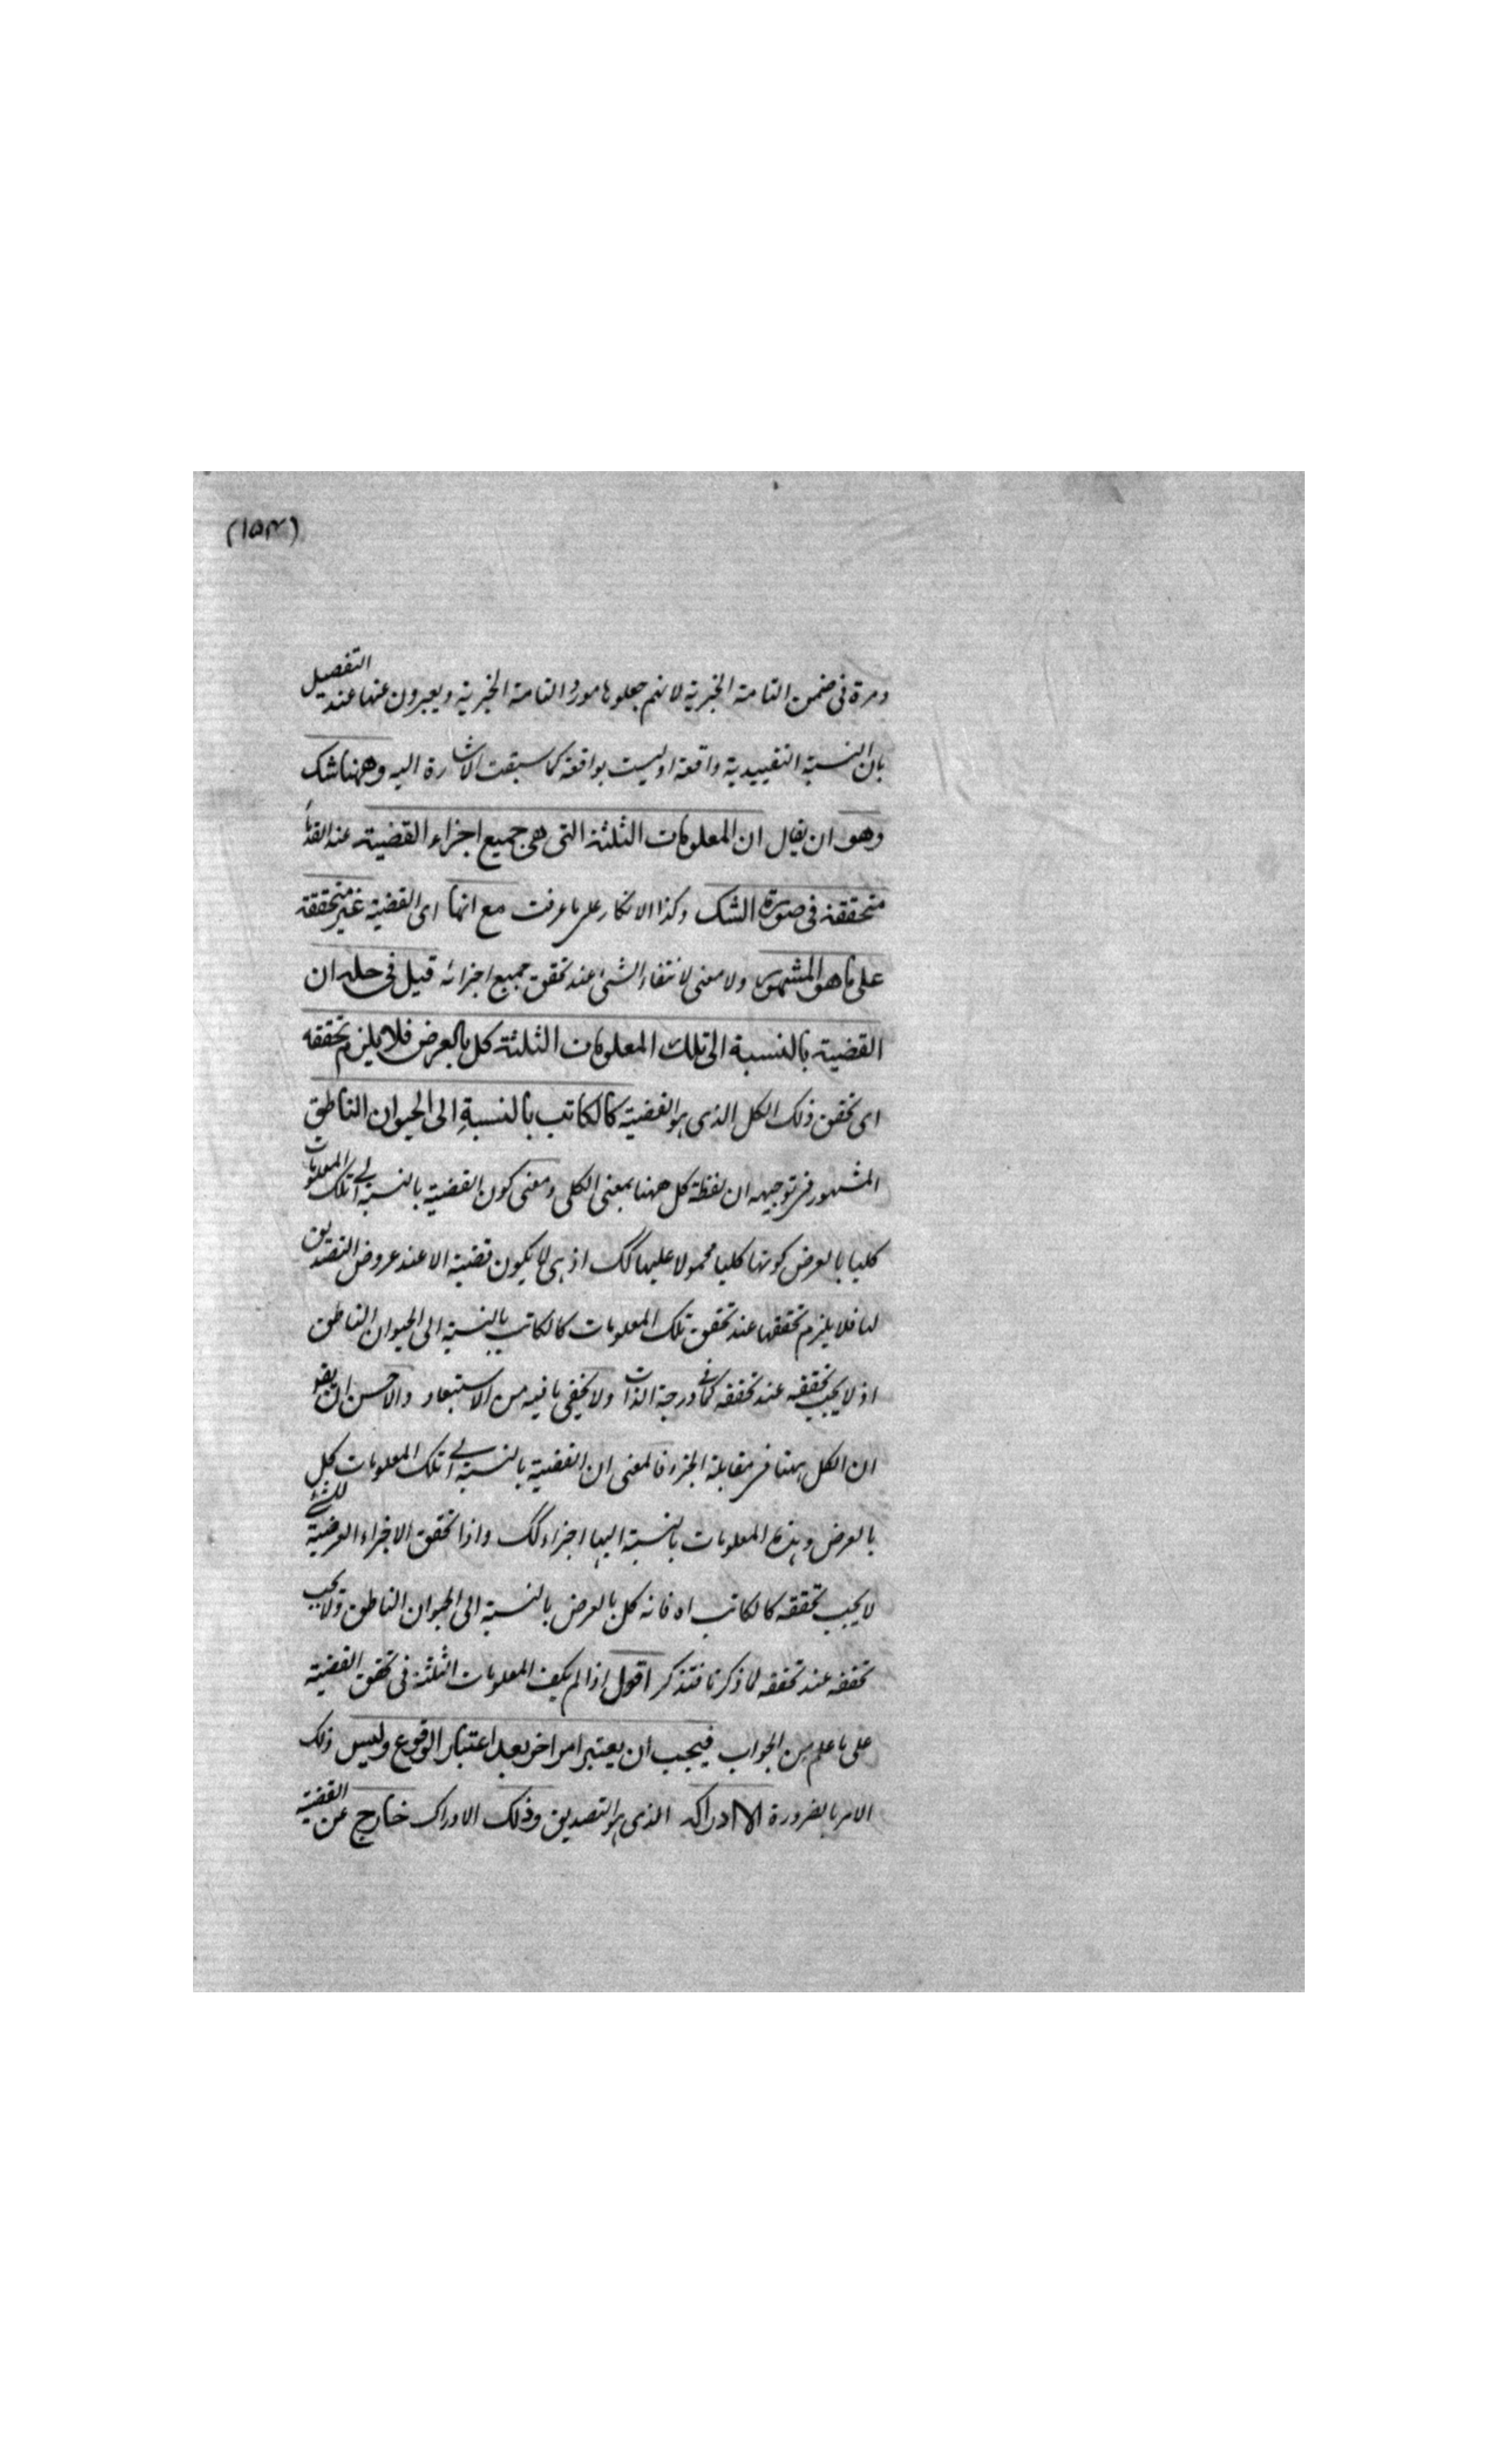 (١٥٣)
ومرة فى ضمن التامة الخبرية لانهم جعلوها مورد التامة الخبرية ويعبرون عنها عند التفصيل
بان النسبة التقييدية واقعة او ليست بواقعة كما سبقت الاشارة اليه وههنا شك
وهو ان يقال ان المعلومات الثلثة التى هى جميع اجزاء القضية عند القدماء
متحققة فى صورة الشك وكذا الانكار على ما عرفت مع انها اى القضية غير متحققة
على ما هو المشهور ولا معنى لانتفاء الشئ عند تحقق جميع اجزائه قيل فى حله ان
القضية بالنسبة الى تلك المعلومات الثلثة كل بالعرض فلا يلزم تحققه
اى تحقق ذلك الكل الذى هو القضية كالكاتب بالنسبة الى الحيوان الناطق
المشهور فى توجيهه ان لفظة كل ههنا بمعنى الكلى ومعنى كون القضية بالنسبة الى تلك المعلومات
كليا بالعرض كونها كليا محمولا عليها كك اذ هى لا يكون قضية الا عند عروض التصديق
لها فلا يلزم تحققها عند تحقق تلك المعلومات كالكاتب بالنسبة الى الحيوان الناطق
اذ لا يجب تحققه عند تحققه كما فى درجة الذات ولا يخفى ما فيه من الاستبعاد والاحسن ان يقو
ان الكل ههنا فى مقابلة الجزء فالمعنى ان القضية بالنسبة الى تلك المعلومات كل
بالعرض وهذه المعلومات بالنسبة اليها اجزاء كك واذا تحقق الاجزاء العرضية للشئ
لا يجب تحققه كالكاتب اه فانه كل بالعرض بالنسبة الى الحيوان الناطق ولا يجب
تحققه عند تحققه لما ذكرنا فتذكر اقول اذا لم يكف المعلومات الثلثة فى تحقق القضية
على ما علم من الجواب فيجب ان يعتبر امر اخر بعد اعتبار الوقوع وليس ذلك
الامر بالضرورة الا ادراكه الذى هو التصديق وذلك الادراك خارج عن القضية